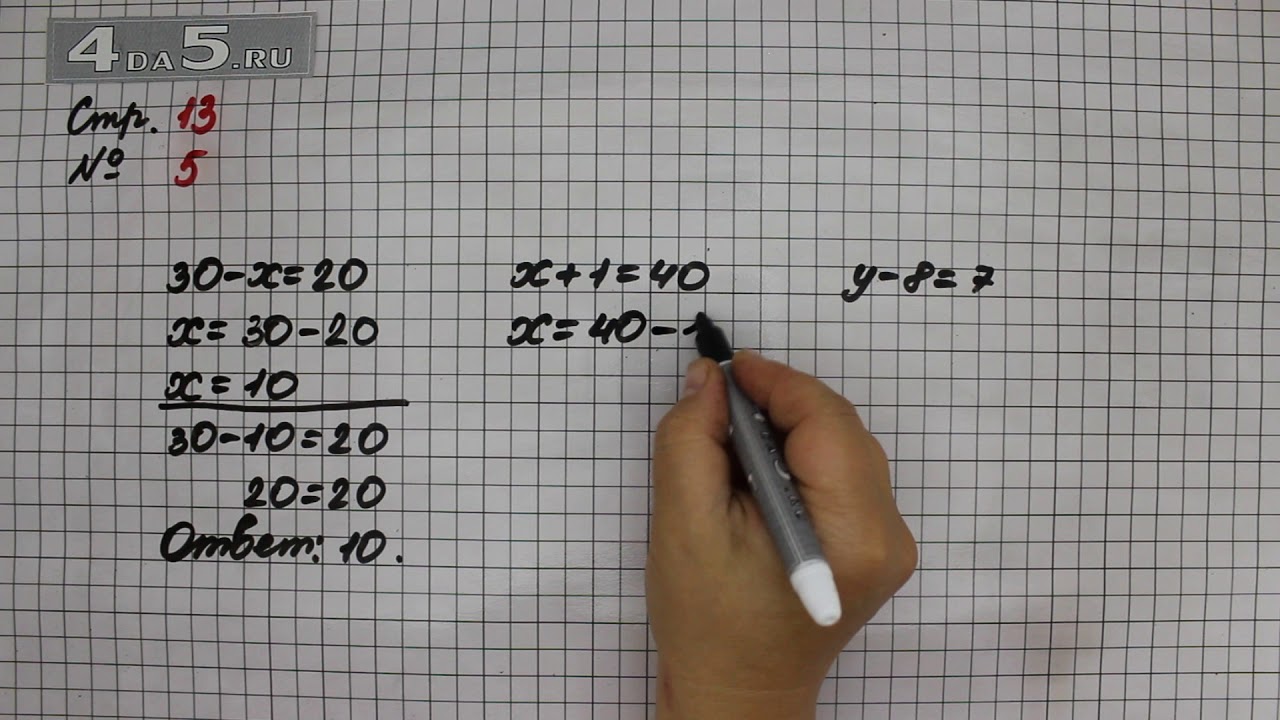 4DA5.RU
Стр. 13
№ 5
30-x=20
x=30-20
x=10
30-10=20
20=20
Ответ: 10.
x+1=40
x=40-1
y-8=7